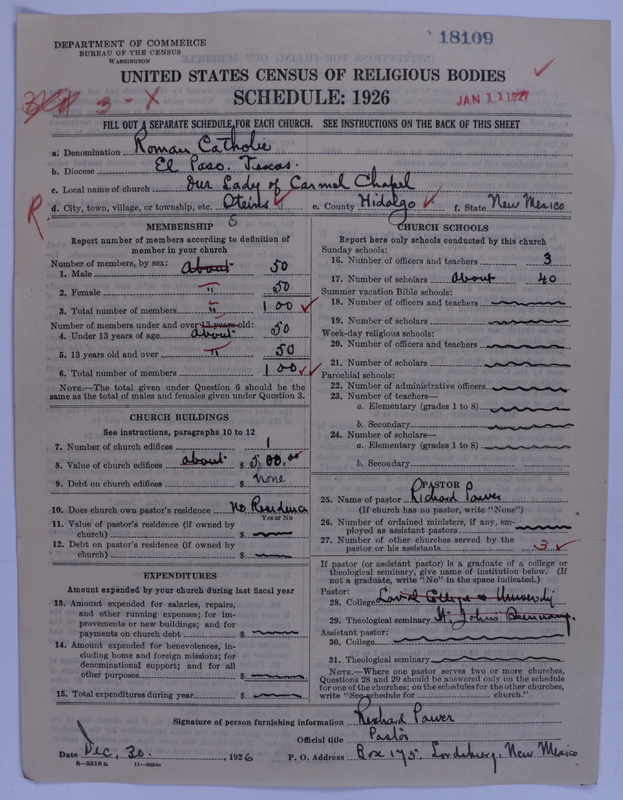 18109
DEPARTMENT OF COMMERCE
BUREAU OF THE CENSUS
WASHINGTON
UNITED STATES CENSUS OF RELIGIOUS BODIES
SCHEDULE: 1926
3-X
JAN 11 1927
FILL OUT A SEPARATE SCHEDULE FOR EACH CHURCH. SEE INSTRUCTIONS ON THE BACK OF THIS SHEET
a. Denomination Roman Catholic
b. Diocese El Paso. Texas.
c. Local name of church Our Lady of Carmel Chapel
R d. City, town, village, or township, etc. e. County Hidalgo f. State New Mexico
MEMBERSHIP
Report number of members according to definition of
member in your church
Number of members, by sex:
1. Male about 50
2. Female " 50
3. Total number of members " 100
Number of members under and over 13 years old:
4. Under 13 years of age about 50
5. 13 years old and over " 50
6. Total number of members 100
NOTE.—The total given under Question 6 should be the
same as the total of males and females given under Question 3.
CHURCH BUILDINGS
See instructions, paragraphs 10 to 12
7. Number of church edifices 1
8. Value of church edifices about $
9. Debt on church edifices $ none
10. Does church own pastor's residence No Residence
Yes or No
11. Value of pastor's residence (if owned by
church) $
12. Debt on pastor's residence (if owned by
church) $
EXPENDITURES
Amount expended by your church during last fiscal year
13. Amount expended for salaries, repairs,
and other running expenses; for im-
provements or new buildings; and for
payments on church debt $
14. Amount expended for benevolences, in-
cluding home and foreign missions; for
denominational support; and for all
other purposes $
15. Total expenditures during year $
CHURCH SCHOOLS
Report here only schools conducted by this church
Sunday schools:
16. Number of officers and teachers 3
17. Number of scholars about 40
Summer vacation Bible schools:
18. Number of officers and teachers
19. Number of scholars
Week-day religious schools:
20. Number of officers and teachers
21. Number of scholars
Parochial schools:
22. Number of administrative officers
23. Number of teachers—
a. Elementary (grades 1 to 8)
b. Secondary
24. Number of scholars—
a. Elementary (grades 1 to 8)
b. Secondary
PASTOR
25. Name of pastor Richard Power
(If church has no pastor, write "None")
26. Number of ordained ministers, if any, em-
ployed as assistant pastors
27. Number of other churches served by the
pastor or his assistants 3
If pastor (or assistant pastor) is a graduate of a college or
theological seminary, give name of institution below. (If
not a graduate, write "No" in the space indicated.)
Pastor:
28. College Laval College & University
29. Theological seminary St. Johns Seminary.
Assistant pastor:
30. College
31. Theological seminary
NOTE.—Where one pastor serves two or more churches,
Questions 28 and 29 should be answered only on the schedule
for one of the churches; on the schedules for the other churches,
write "See schedule for church."
Signature of person furnishing information Richard Power
Official title Pastor
Date Dec. 30. , 1926 P. O. Address Box 175. Lordsburg, New Mexico
8—5518 a